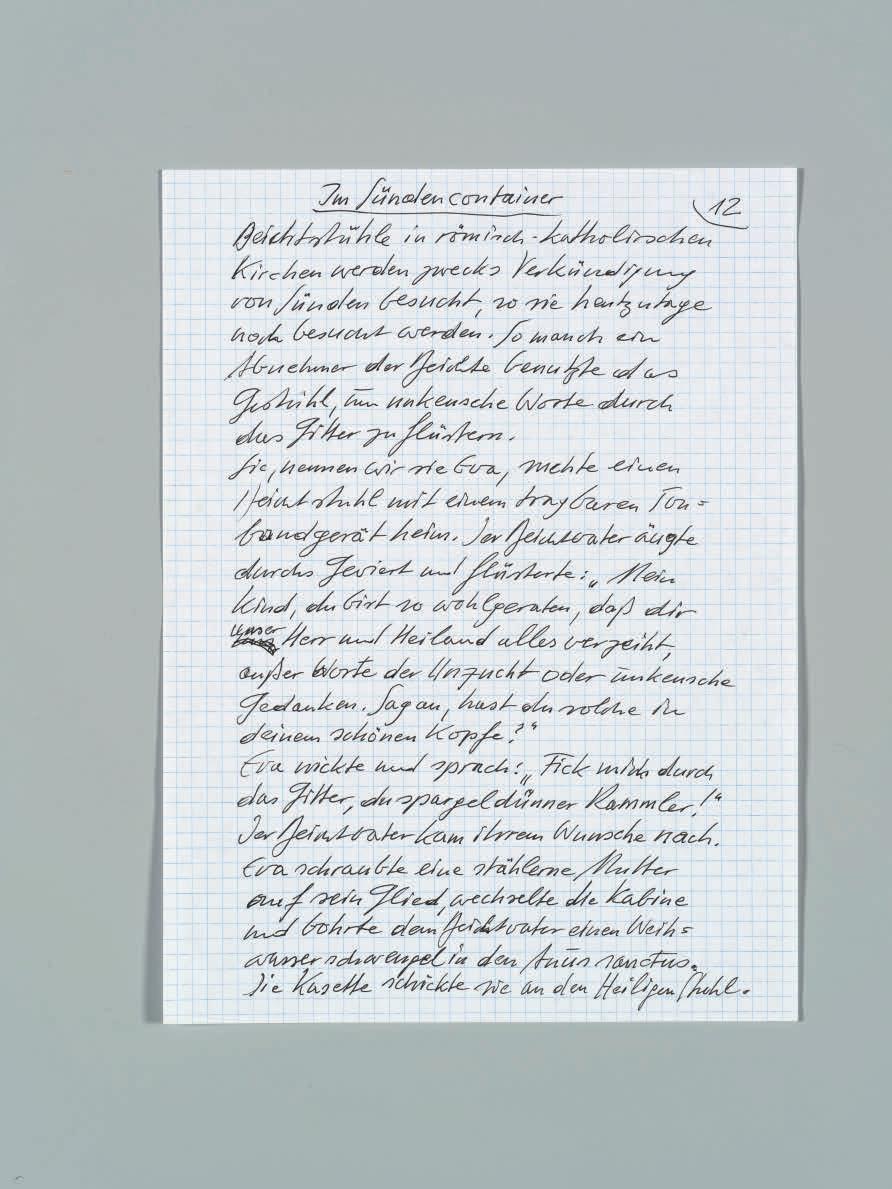 Im Sündencontainer
12
Beichtstühle in römisch-katholischen
Kirchen werden zwecks Verkündigung
von Sünden besucht, so sie heutzutage
noch besucht werden. So manch ein
Abnehmer der Beichte benutzte das
Gestühl, um unkeusche Worte durch
das Gitter zu flüstern.
Sie, nennen wir sie Eva, suchte einen
Beichtstuhl mit einem tragbaren Ton=
bandgerät heim. Der Beichtvater äugte
durchs Geviert und flüsterte: „Mein
Kind, du bist so wohlgeraten, daß dir
unser Herr und Heiland alles verzeiht,
außer Worte der Unzucht oder unkeusche
Gedanken. Sag an, hast du solche in
deinem schönen Kopfe?“
Eva nickte und sprach: „Fick mich durch
das Gitter, du spargeldünner Rammler!“
Der Beichtvater kam ihrem Wunsche nach.
Eva schraubte eine stählerne Mutter
auf sein Glied, wechselte die Kabine
und bohrte dem Beichtvater einen Weih=
wasserschwengel in den Anus sanctus.
Die Kasette schickte sie an den Heiligen Stuhl.